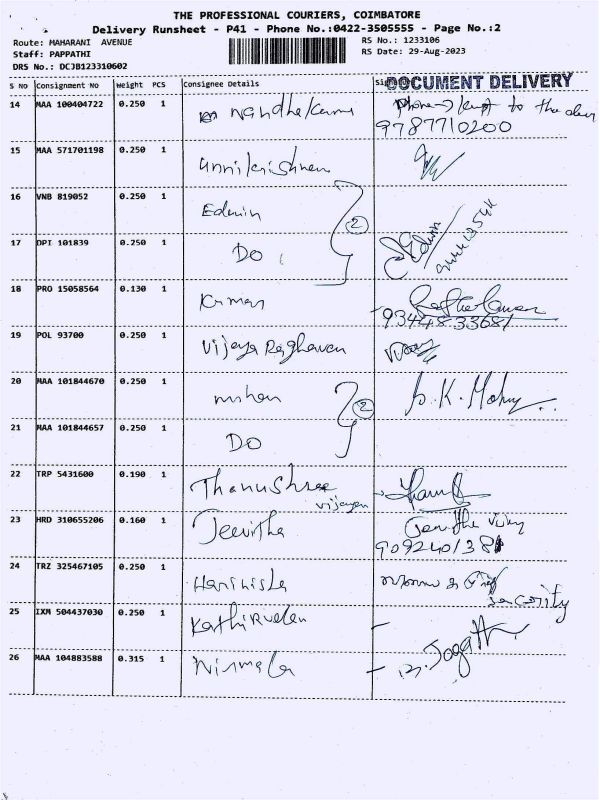 THE PROFESSIONAL COURIERS, COIMBATORE
Delivery Runsheet - P41 - Phone No.:0422-3505555 - Page No.:2
Route: MAHARANI AVENUE RS No.: 1233106
Staff: PAPPATHI RS Date: 29-Aug-2023
DRS No.: DCJB123310602
S No Consignment No Weight PCS Consignee Details DOCUMENT DELIVERY
14 MAA 100404722 0.250 1 Nandhakumar to the door
9787710200
15 MAA 571701198 0.250 1 Unnikrishnan
16 VNB 819052 0.250 1 Edwin
2
17 DPI 101839 0.250 1 Do Edwin
18 PRO 15058564 0.130 1 Kumar
9344833681
19 POL 93700 0.250 1 Vijaya Raghavan
20 MAA 101844670 0.250 1 mohan 2
21 MAA 101844657 0.250 1 Do
22 TRP 5431600 0.190 1 Thanushree
vijayan
23 HRD 310655206 0.160 1 Jeevitha
9092401381
24 TRZ 325467105 0.250 1
security
25 IXM 504437030 0.250 1 Kathirvelan
26 MAA 104883588 0.315 1 Nirmala